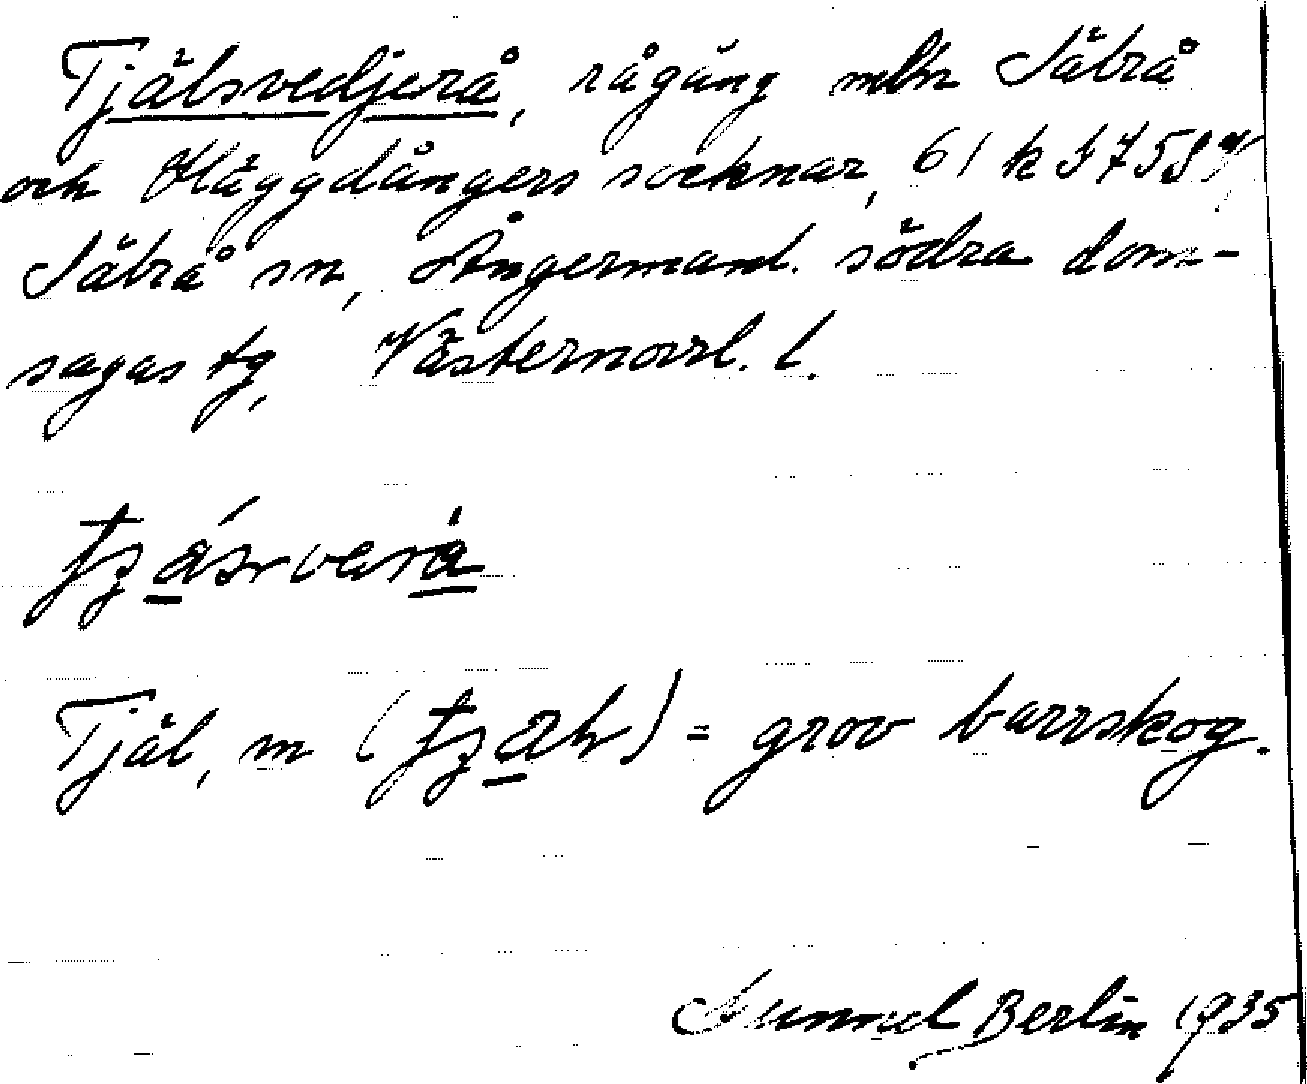 Tjälsvedjerå, rågång mln Säbrå
och Häggdångers socknar, 61 k
Säbrå sn, Ångermanl. södra dom-
sagas tg, Västernorrl. l.
Tjäl, m = grov barrskog.
Gunnel Berlin 1935